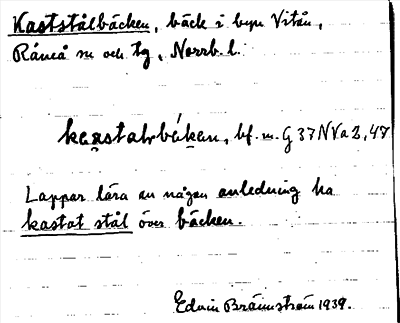 Kaststålbäcken, bäck i byn Vitån,
Råneå sn och tg, Norrb. l.
kastalbäken, bf. m. G 37 N V a 2, 47
Lappar lära av någon anledning ha
kastat stål över bäcken.
Edvin Brännström 1939.